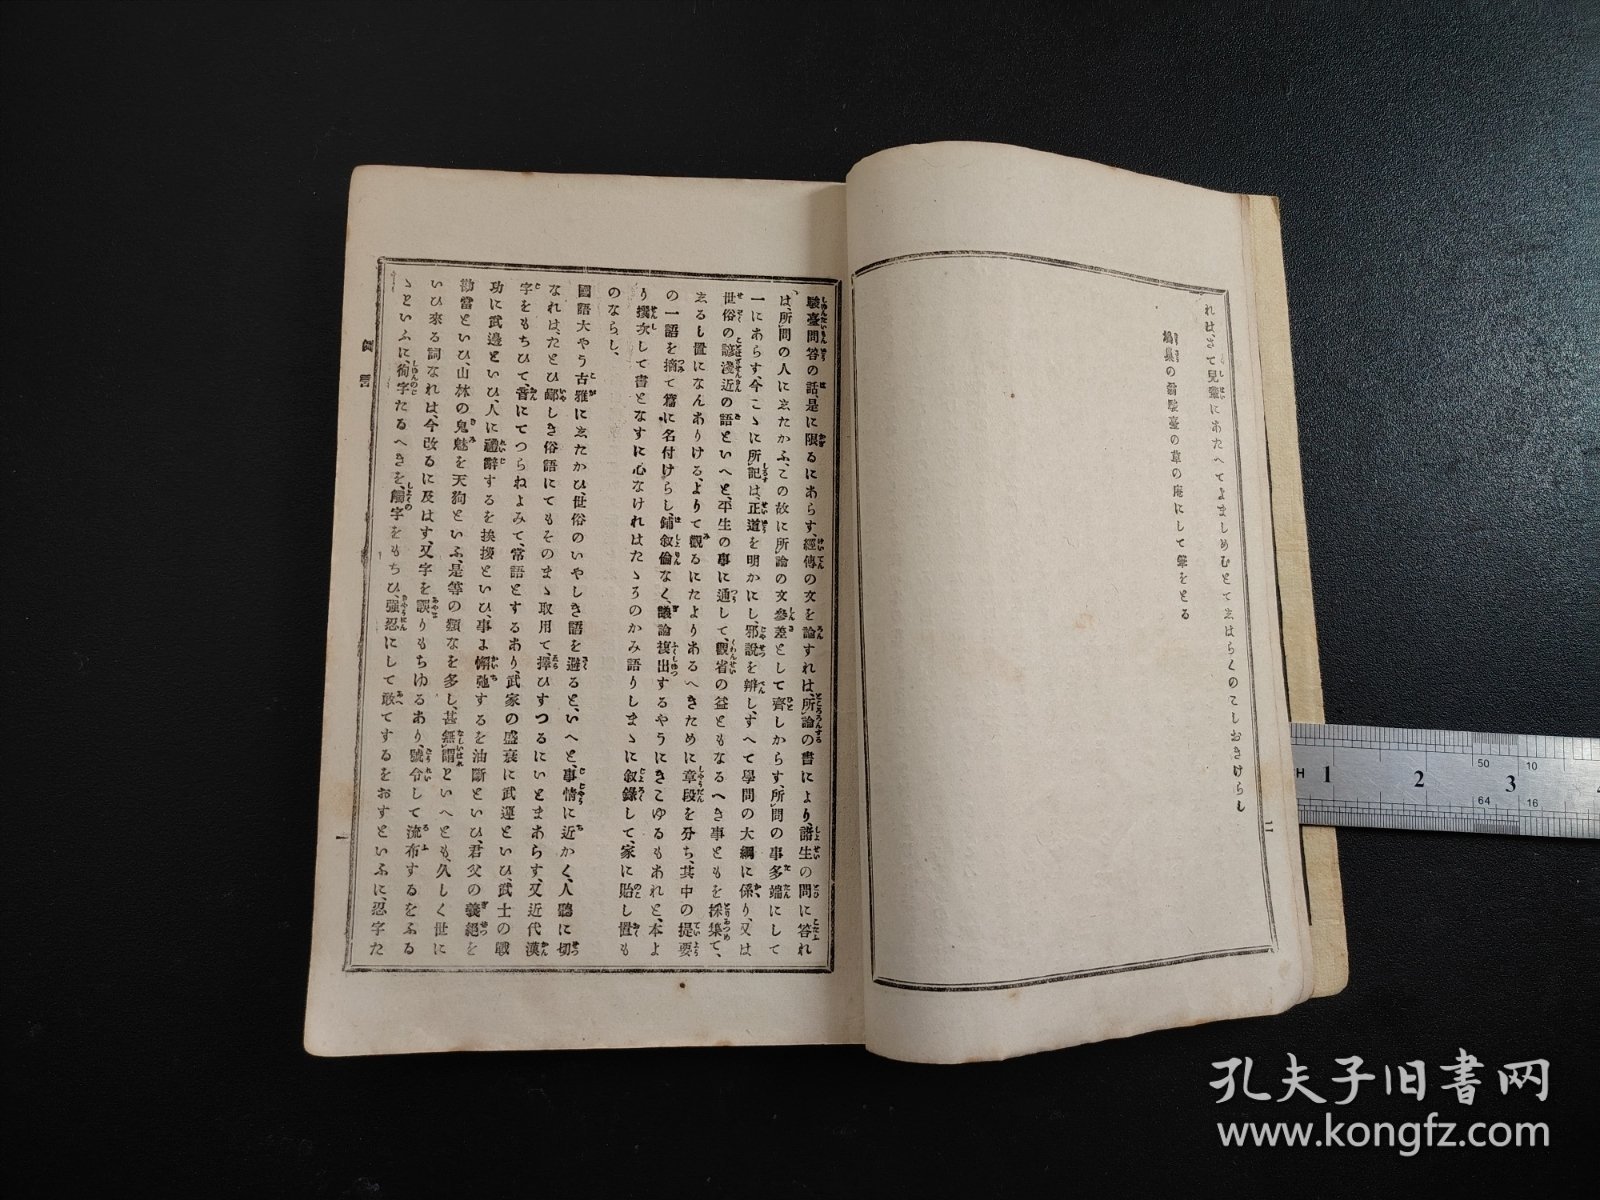 れは、さて兒輩にあたへてよましめむとてゑはらくのこしおきけらし
鳩巢の翁駿臺の草の庵にして筆をとる
二
駿臺問答の話、是に限るにあらす、經傳の文を論すれは、所論の書により、諸生の問に答れ
は、所問の人にゑたかふ、この故に所論の文參差として齊しからす、所問の事多端にして
一にあらす、今こゝに所記は、正道を明かにし、邪說を辨し、すへて學問の大綱に係り、又は
世俗の諺淺近の語といへと、平生の事に通して、觀省の益ともなるへき事ともを採集て、
ゑるし置になんありける、よりて觀るにたよりあるへきために章段を分ち、其中の提要
の一語を摘て篇に名付けらし、鋪叙倫なく、議論複出するやうにきこゆるもあれと、本よ
り撰次して書となすに心なけれはたゝそのかみ語りしまゝに叙錄して、家に貽し置も
のならし、
國語大やう古雅にゑたかひ、世俗のいやしき語を避ると、いへと、事情に近かく、人聽に切
なれは、たとひ鄙しき俗語にてもそのまゝ取用て、擇ひすつるにいとまあらす、又近代漢
字をもちひて、音にてつらねよみて、常語とするあり、武家の盛衰に武運といひ、武士の戰
功に武邊といひ、人に通辭するを挨拶といひ、事に懈弛するを油斷といひ、君父の義絕を
勘當といひ、山林の鬼魅を天狗といふ、是等の類なを多し、甚無謂といへとも、久しく世に
いひ來る詞なれは、今改るに及はす、又字を誤りもちゆるあり、號令して流布するをふる
ゝといふに、徇字たるへきを、觸字をもちひ、强忍にして敢てするをおすといふに、忍字た
例言
一
H 1 2 3
50 10
64 16
孔夫子旧書网
www.kongfz.com